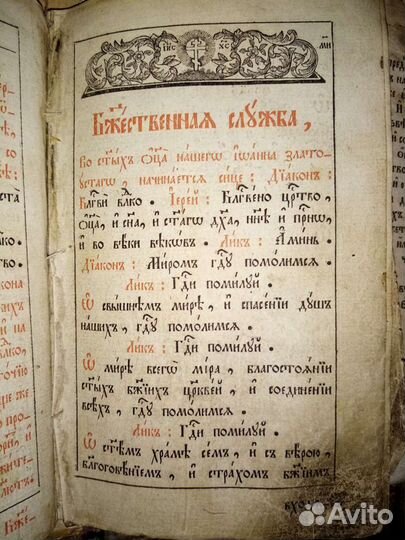 І҆И҃С ХС҃
Бж҃е́ственнаѧ слꙋ́жба,
Во ст҃ы́хъ ѻ҆ц҃а̀ на́шегѡ і҆ѡа́нна злато-
ꙋ́стагѡ, начина́етсѧ си́це: Дїа́конъ:
Бл҃гвѝ влⷣко. І҆ере́й: Бл҃гве́но црⷭ҇тво,
ѻ҆ц҃а̀, и҆ сн҃а, и҆ ст҃а́гѡ дх҃а, нн҃ѣ и҆ при́снѡ,
и҆ во вѣ́ки вѣкѡ́въ. Ли́къ: А҆ми́нь.
Дїа́конъ: Ми́ромъ гдⷭ҇ꙋ помо́лимсѧ.
Ли́къ: Гдⷭ҇и поми́лꙋй.
Ѡ҆ свы́шнѣмъ ми́рѣ, и҆ спасе́нїи дꙋ́шъ
на́шихъ, гдⷭ҇ꙋ помо́лимсѧ.
Ли́къ: Гдⷭ҇и поми́лꙋй.
Ѡ҆ ми́рѣ всегѡ̀ мі́ра, благостоѧ́нїи
ст҃ы́хъ бж҃їихъ цр҃кве́й, и҆ соедине́нїи
всѣ́хъ, гдⷭ҇ꙋ помо́лимсѧ.
Ли́къ: Гдⷭ҇и поми́лꙋй.
Ѡ҆ ст҃ѣ́мъ хра́мѣ се́мъ, и҆ съ вѣ́рою,
благоговѣ́нїемъ, и҆ стра́хомъ бж҃їимъ
Avito